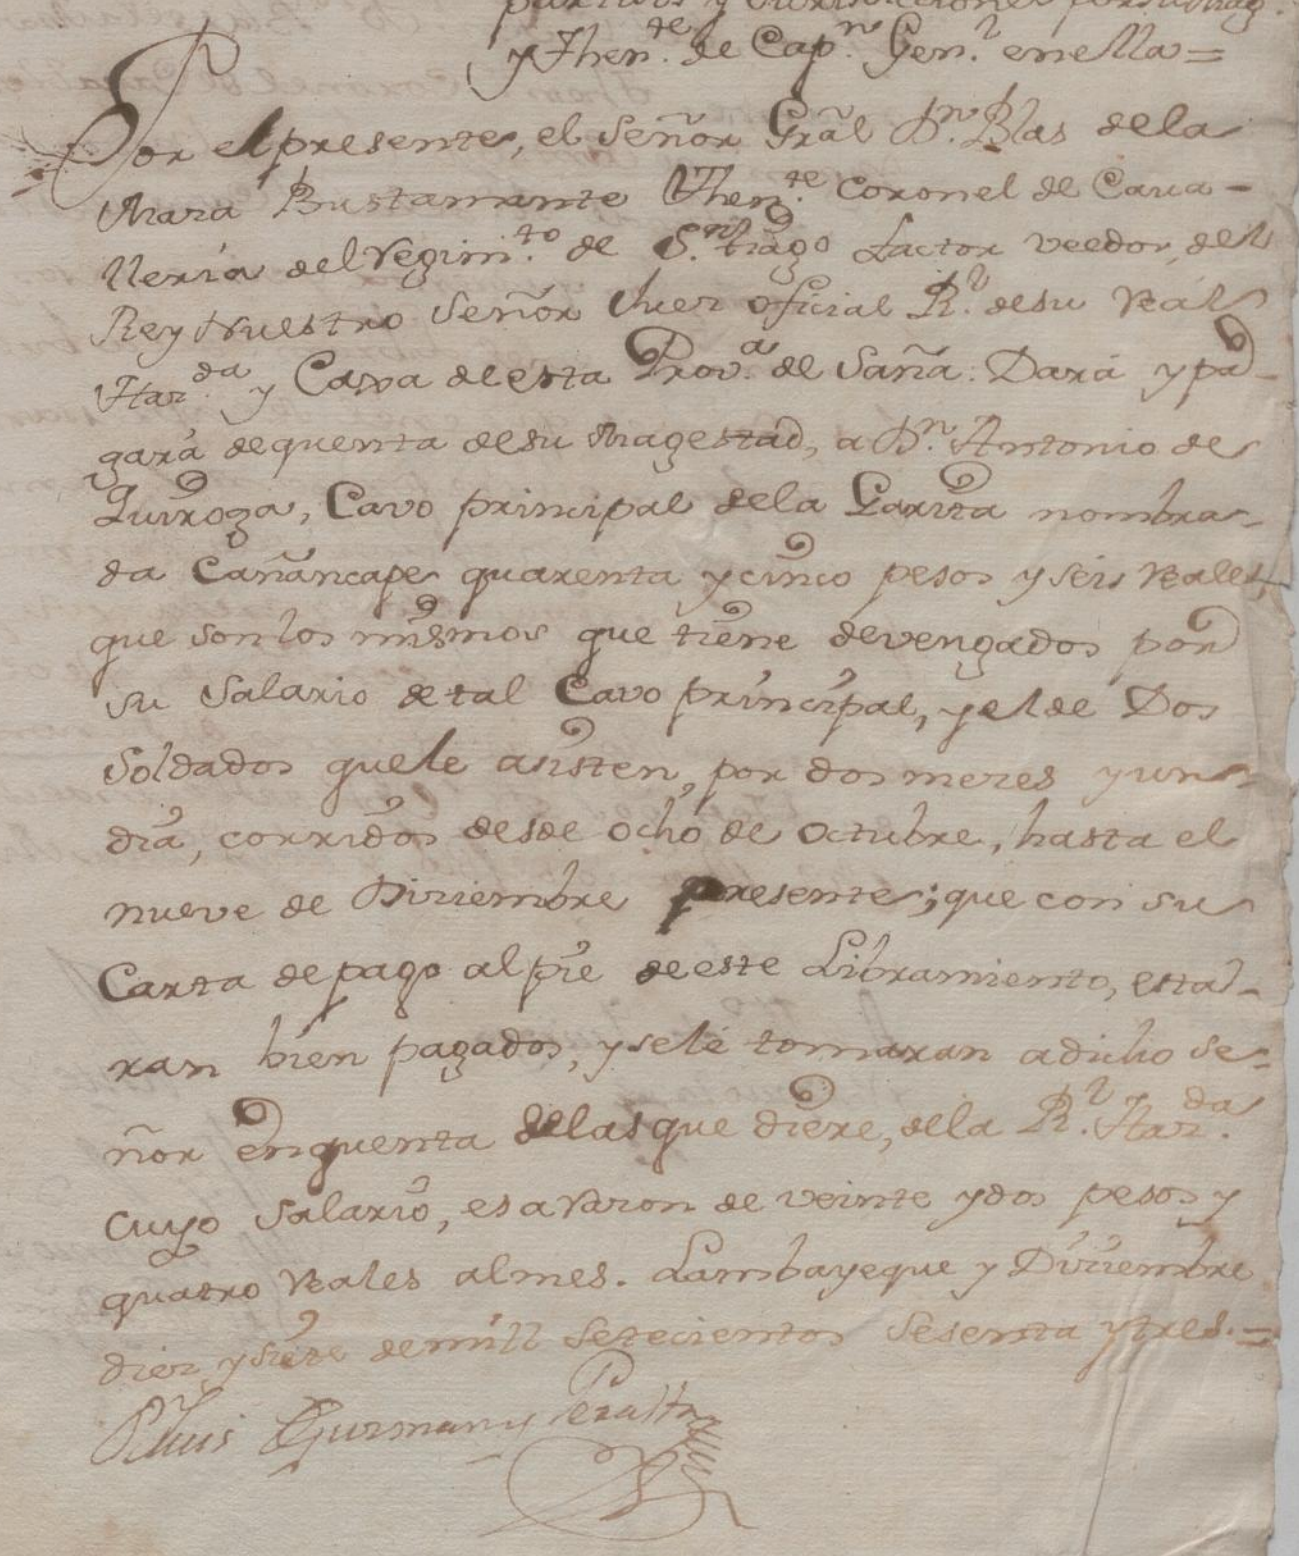 partidos y Jurisdicciones por su Mag.
y Then.te de Cap.n Gen.l en ella =
Por el presente, el Señor Gral D.n Blas de la
Mara Bustamante Then.te Coronel de Cava-
lleria del Regim.to de S.ntiago Factor veedor, del
Rey Nuestro Señor Juez oficial R.l de su Real
Haz.da y Caxa de esta Prov.a de Saña: Dará y pa-
gará de quenta de su Magestad, a D.n Antonio de
Quiroga, Cavo principal de la Garita nombra-
da Cañancape quarenta y cinco pesos y seis Reales,
que son los mismos que tiene devengados por
su Salario de tal Cavo principal, y el de Dos
Soldados que le asisten, por dos meses y un
dia, corridos desde ocho de octubre, hasta el
nueve de Diziembre presente; que con su
Carta de pago al pie de este Libramiento, esta-
ran bien pagados, y se le tomaran a dicho se-
ñor en quenta de las que diere, de la R.l Haz.da
cuyo Salario, es a razon de veinte y dos pesos y
quatro Reales al mes. Lambayeque y Diziembre
diez y siete de mill setecientos sesenta y tres. =
D.n Luis Gusman y Peralta